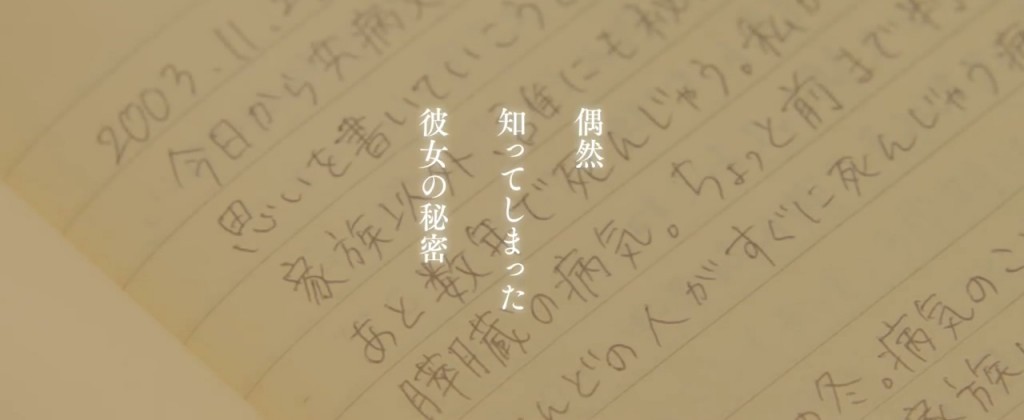 偶然
知ってしまった
彼女の秘密
2003.11.
今日から共病文
思いを書いていこうと
家族以外、誰にも秘
あと数年で死んじゃう。私は
膵臓の病気。ちょっと前まで判
んどの人がすぐに死んじゃう病
冬。病気のこ
家族